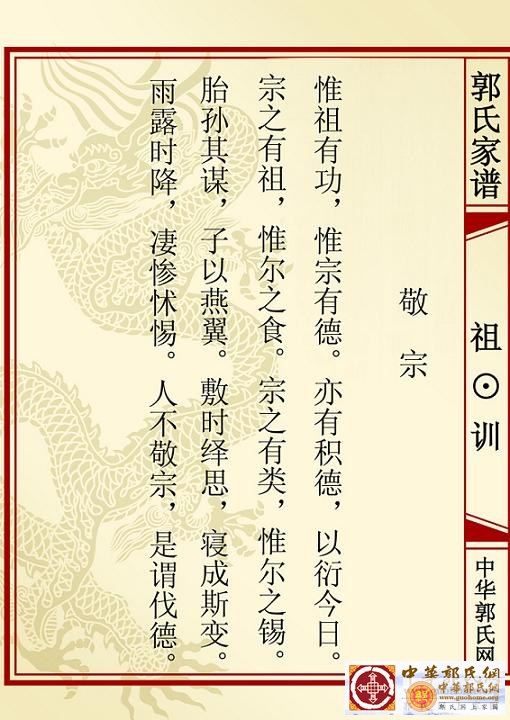 郭氏家谱
祖⊙训
中华郭氏网
敬宗
惟祖有功，惟宗有德。亦有积德，以衍今日。
宗之有祖，惟尔之食。宗之有类，惟尔之锡。
胎孙其谋，子以燕翼。敷时绎思，寝成斯变。
雨露时降，凄惨怵惕。人不敬宗，是谓伐德。
中華郭氏網
中華郭氏网
www.guohome.org
郭氏网上家园